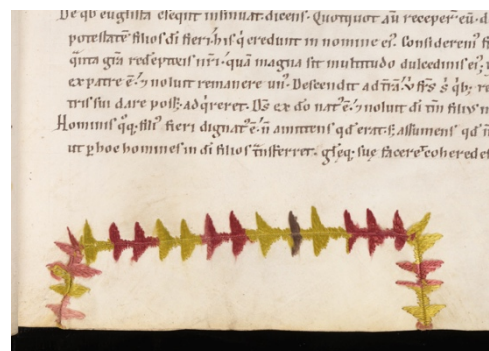 De q̇b euglista eseqūt insinuat. dicens. Quotquot aū receper̄ eū. d
potestatē filios di fieri. his q̇ eredunt in nomine ei⁹. Considerem⁹ f
quita grā redeptoris nr̄i. quā magna sit multitudo dulcedinis ei⁹.
ex patre ē. ⁊ noluit remanere un⁹. Descendit ad
tris sui dare posset. adq̇reret. Ds̄ ex dō nat⁹ ē. ⁊ noluit di tm̄ filius
Hominis q̇q. fili⁹ fieri dignat⁹ ē. n̄ amittens qd̓ erat. s; assumens qd̓
ut ꝑ hoc homines in di filios t̄nsferret. suę facere coheredes